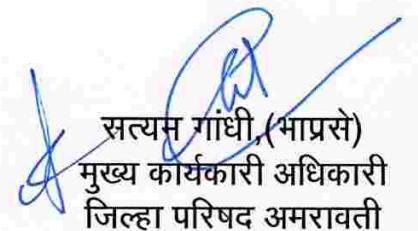 सत्यम गांधी,(भाप्रसे)
मुख्य कार्यकारी अधिकारी
जिल्हा परिषद अमरावती